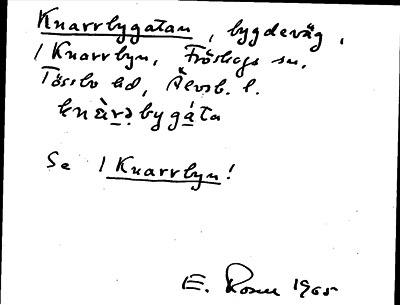 Knarrbygatan, bygdeväg,
/ Knarrbyn, Fröskogs sn,
Tössbo hd, Älvsb. l.
knàrəbygáta
Se / Knarrbyn!
E. Rosen 1965